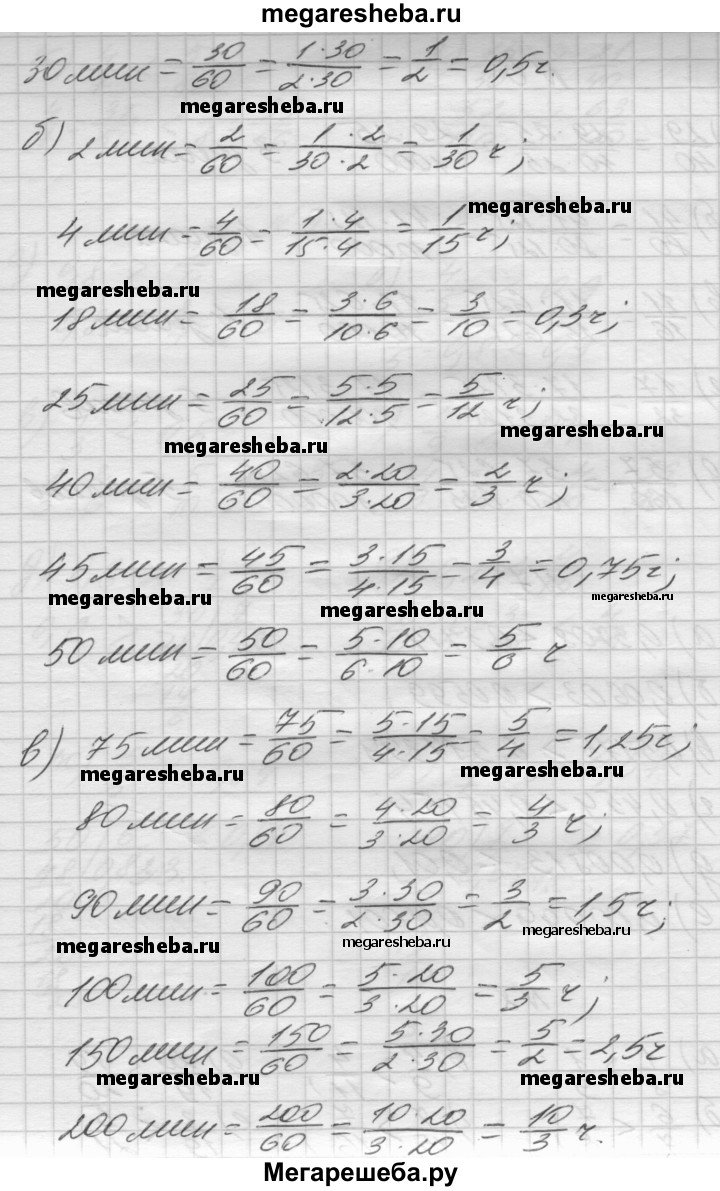 megaresheba.ru
30 мин = 30/60 = 1·30/2·30 = 1/2 = 0,5 ч.
megaresheba.ru
б) 2 мин = 2/60 = 1·2/30·2 = 1/30 ч;
megaresheba.ru
4 мин = 4/60 = 1·4/15·4 = 1/15 ч;
megaresheba.ru
18 мин = 18/60 = 3·6/10·6 = 3/10 = 0,3 ч;
25 мин = 25/60 = 5·5/12·5 = 5/12 ч;
megaresheba.ru megaresheba.ru
40 мин = 40/60 = 2·20/3·20 = 2/3 ч;
45 мин = 45/60 = 3·15/4·15 = 3/4 = 0,75 ч;
megaresheba.ru megaresheba.ru megaresheba.ru
50 мин = 50/60 = 5·10/6·10 = 5/6 ч
в) 75 мин = 75/60 = 5·15/4·15 = 5/4 = 1,25 ч;
megaresheba.ru megaresheba.ru
80 мин = 80/60 = 4·20/3·20 = 4/3 ч;
90 мин = 90/60 = 3·30/2·30 = 3/2 = 1,5 ч;
megaresheba.ru megaresheba.ru megaresheba.ru
100 мин = 100/60 = 5·20/3·20 = 5/3 ч;
150 мин = 150/60 = 5·30/2·30 = 5/2 = 2,5 ч
megaresheba.ru megaresheba.ru
200 мин = 200/60 = 10·20/3·20 = 10/3 ч.
Мегарешеба.ру